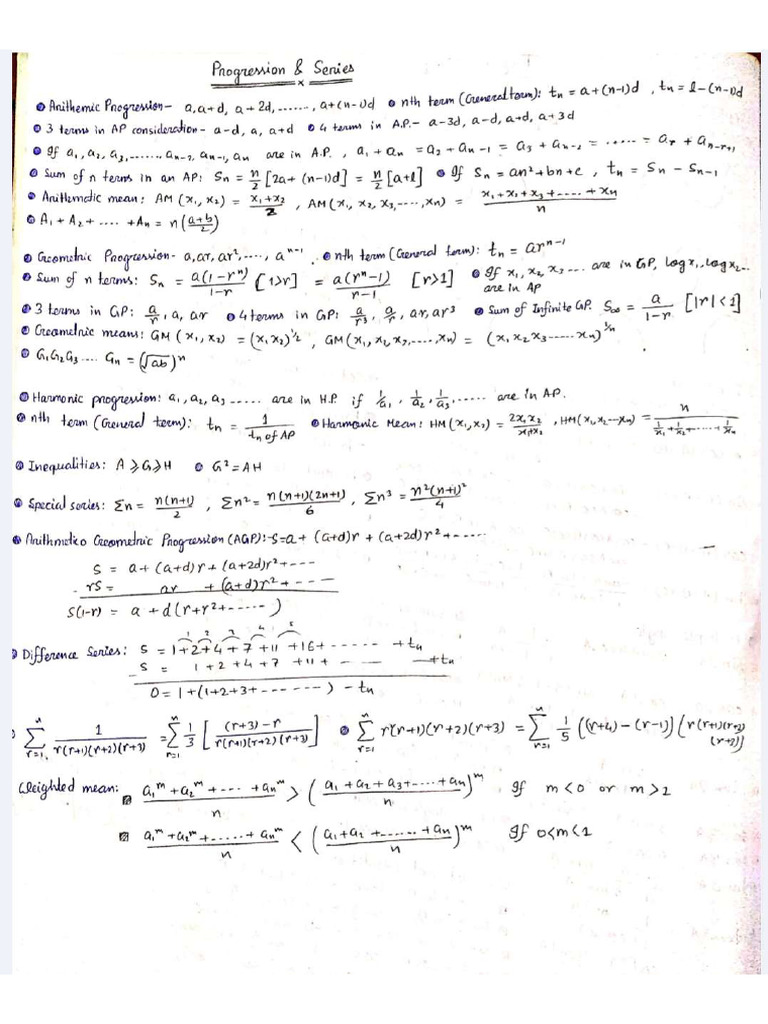 Progression & Series
Arithemic Progression- a, a+d, a+2d, ......., a+(n-1)d • nth term (General term): tn = a+(n-1)d , tn = l-(n-1)d
3 terms in AP consideration- a-d, a, a+d • 4 terms in A.P.- a-3d, a-d, a+d, a+3d
If a₁, a₂, a₃, ......., an-2, an-1, an are in A.P. , a₁ + an = a₂ + an-1 = a₃ + an-2 = ...... = ar + an-r+1
Sum of n terms in an AP: Sn = n/2 [2a+(n-1)d] = n/2 [a+l] • If Sn = an²+bn+c , tn = Sn - Sn-1
Arithmetic mean: AM (x₁, x₂) = (x₁+x₂)/2 , AM(x₁, x₂, x₃, ...., xn) = (x₁+x₂+x₃+.....+xn)/n
A₁ + A₂ + .... + An = n((a+b)/2)
Geometric Progression- a, ar, ar², ...., a^(n-1) . • nth term (General term): tn = ar^(n-1)
Sum of n terms: Sn = a(1-rⁿ)/(1-r) [1>r] = a(rⁿ-1)/(r-1) [r>1] • If x₁, x₂, x₃ ... are in GP, log x₁, log x₂...
are in AP
3 terms in GP: a/r, a, ar • 4 terms in GP: a/r³, a/r, ar, ar³ • Sum of Infinite GP. S∞ = a/(1-r) [|r|<1]
Geametric means: GM (x₁, x₂) = (x₁x₂)^(1/2) , GM(x₁, x₂, x₃, ...., xn) = (x₁x₂x₃.....xn)^(1/n)
G₁G₂G₃.... Gn = (√ab)ⁿ
Harmonic progression: a₁, a₂, a₃ ..... are in H.P if 1/a₁, 1/a₂, 1/a₃, ..... are in AP.
nth term (General term): tn = 1/(tn of AP) • Harmonic Mean: HM(x₁, x₂) = 2x₁x₂/(x₁+x₂) , HM(x₁, x₂ ... xn) = n/(1/x₁ + 1/x₂ + ..... + 1/xn)
Inequalities: A ≥ G ≥ H • G² = AH
Special series: Σn = n(n+1)/2 , Σn² = n(n+1)(2n+1)/6 , Σn³ = n²(n+1)²/4
Arithmetico Geometric Progression (AGP):- S = a + (a+d)r + (a+2d)r² + .....
S = a + (a+d)r + (a+2d)r² + ...
- rS = ar + (a+d)r² + ...
S(1-r) = a + d(r+r²+.....)
Difference Series: S = 1+2+4+7+11+16+ ...... + tn
1 2 3 4 5
S = 1+2+4+7+11+ ... + tn
0 = 1+(1+2+3+.......) - tn
Σ(r=1 to n) 1/(r(r+1)(r+2)(r+3)) = Σ(r=1 to n) 1/3 [((r+3)-r)/(r(r+1)(r+2)(r+3))] • Σ(r=1 to n) r(r+1)(r+2)(r+3) = Σ(r=1 to n) 1/5 ((r+4)-(r-1)) [r(r+1)(r+2)
(r+3)]
Weighted mean: (a₁^m + a₂^m + ... + an^m)/n > ((a₁+a₂+a₃+....+an)/n)^m If m<0 or m>1
(a₁^m + a₂^m + ...... + an^m)/n < ((a₁+a₂+......+an)/n)^m If 0<m<1